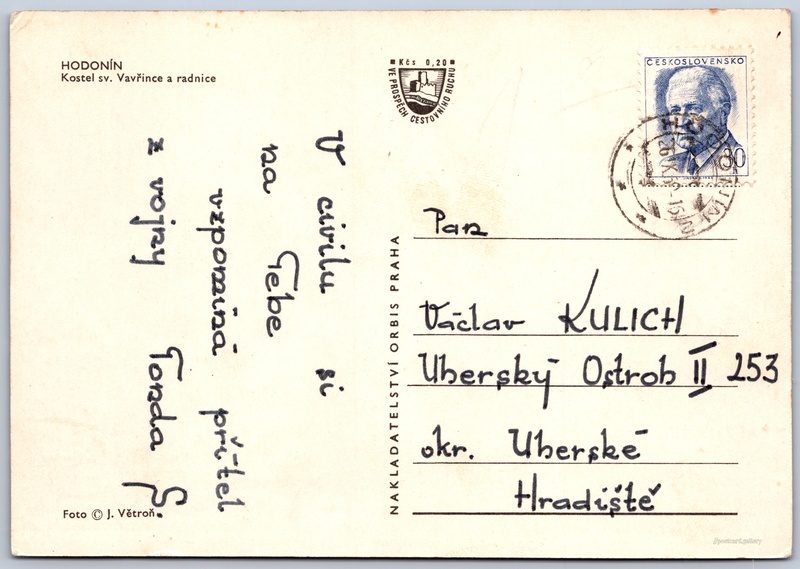 HODONÍN
Kostel sv. Vavřince a radnice
V civilu si
na Tebe
vzpomíná přítel
z vojny Tonda
Foto © J. Větroň
Kčs 0,20
VE PROSPĚCH CESTOVNÍHO RUCHU
NAKLADATELSTVÍ ORBIS PRAHA
ČESKOSLOVENSKO
30
HODONÍN
Pan
Václav KULICH
Uherský Ostroh II 253
okr. Uherské
Hradiště